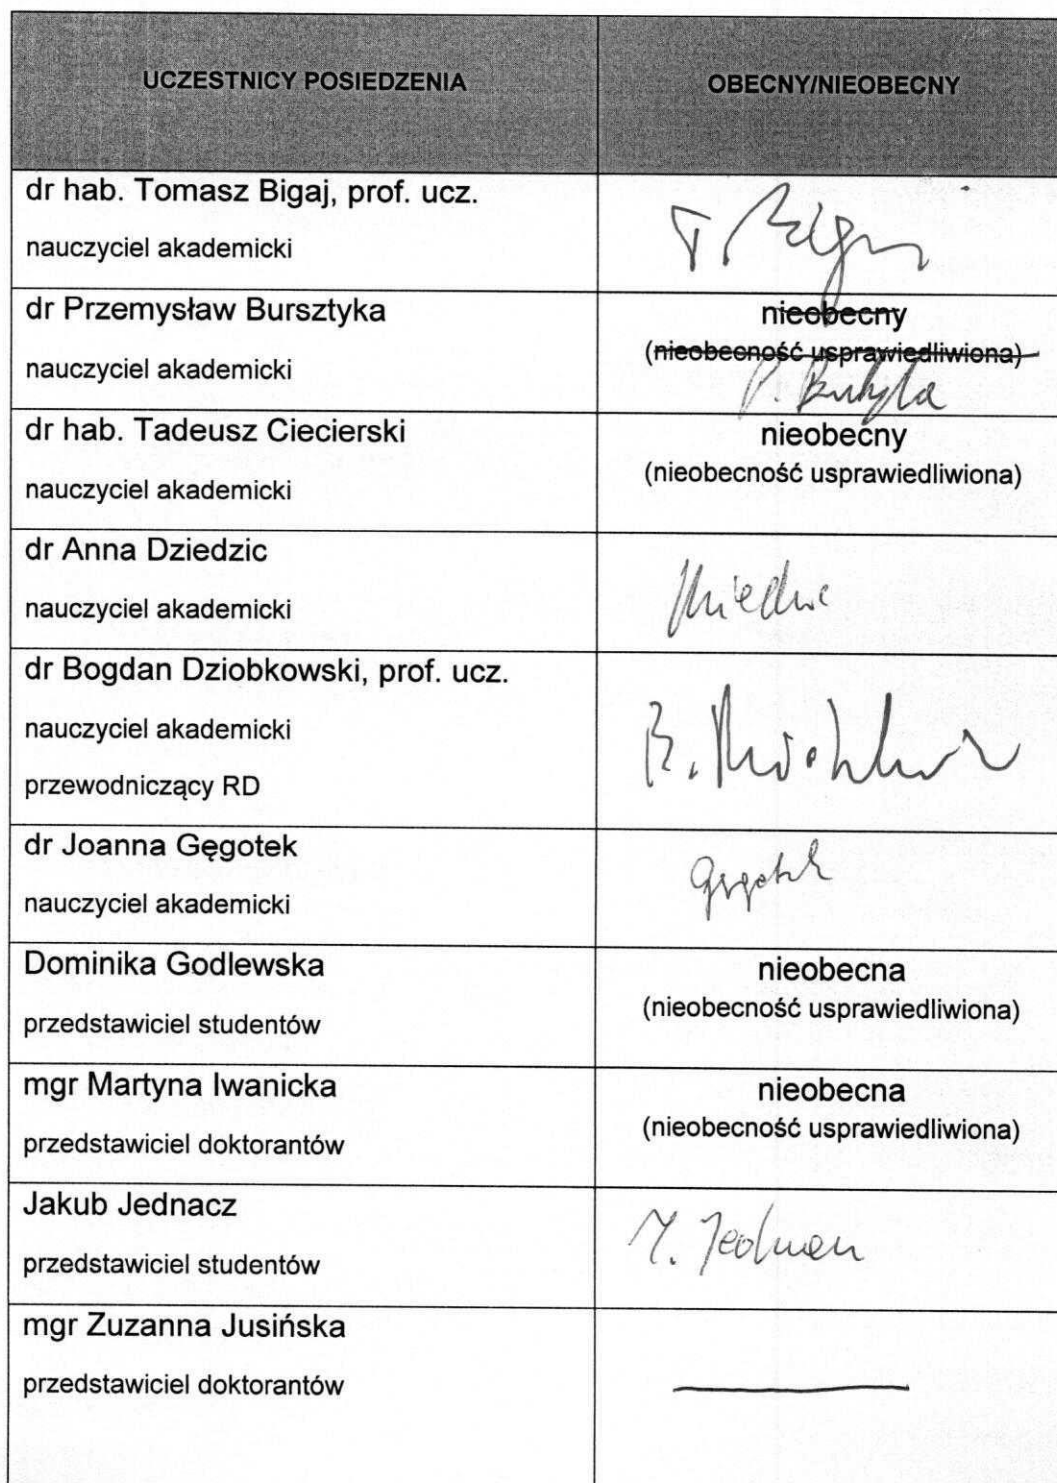 UCZESTNICY POSIEDZENIA
OBECNY/NIEOBECNY
dr hab. Tomasz Bigaj, prof. ucz.
nauczyciel akademicki
T. Bigaj
dr Przemysław Bursztyka
nauczyciel akademicki
nieobecny
(nieobecność usprawiedliwiona)
dr hab. Tadeusz Ciecierski
nauczyciel akademicki
nieobecny
(nieobecność usprawiedliwiona)
dr Anna Dziedzic
nauczyciel akademicki
dr Bogdan Dziobkowski, prof. ucz.
nauczyciel akademicki
przewodniczący RD
dr Joanna Gęgotek
nauczyciel akademicki
Gęgotek
Dominika Godlewska
przedstawiciel studentów
nieobecna
(nieobecność usprawiedliwiona)
mgr Martyna Iwanicka
przedstawiciel doktorantów
nieobecna
(nieobecność usprawiedliwiona)
Jakub Jednacz
przedstawiciel studentów
mgr Zuzanna Jusińska
przedstawiciel doktorantów